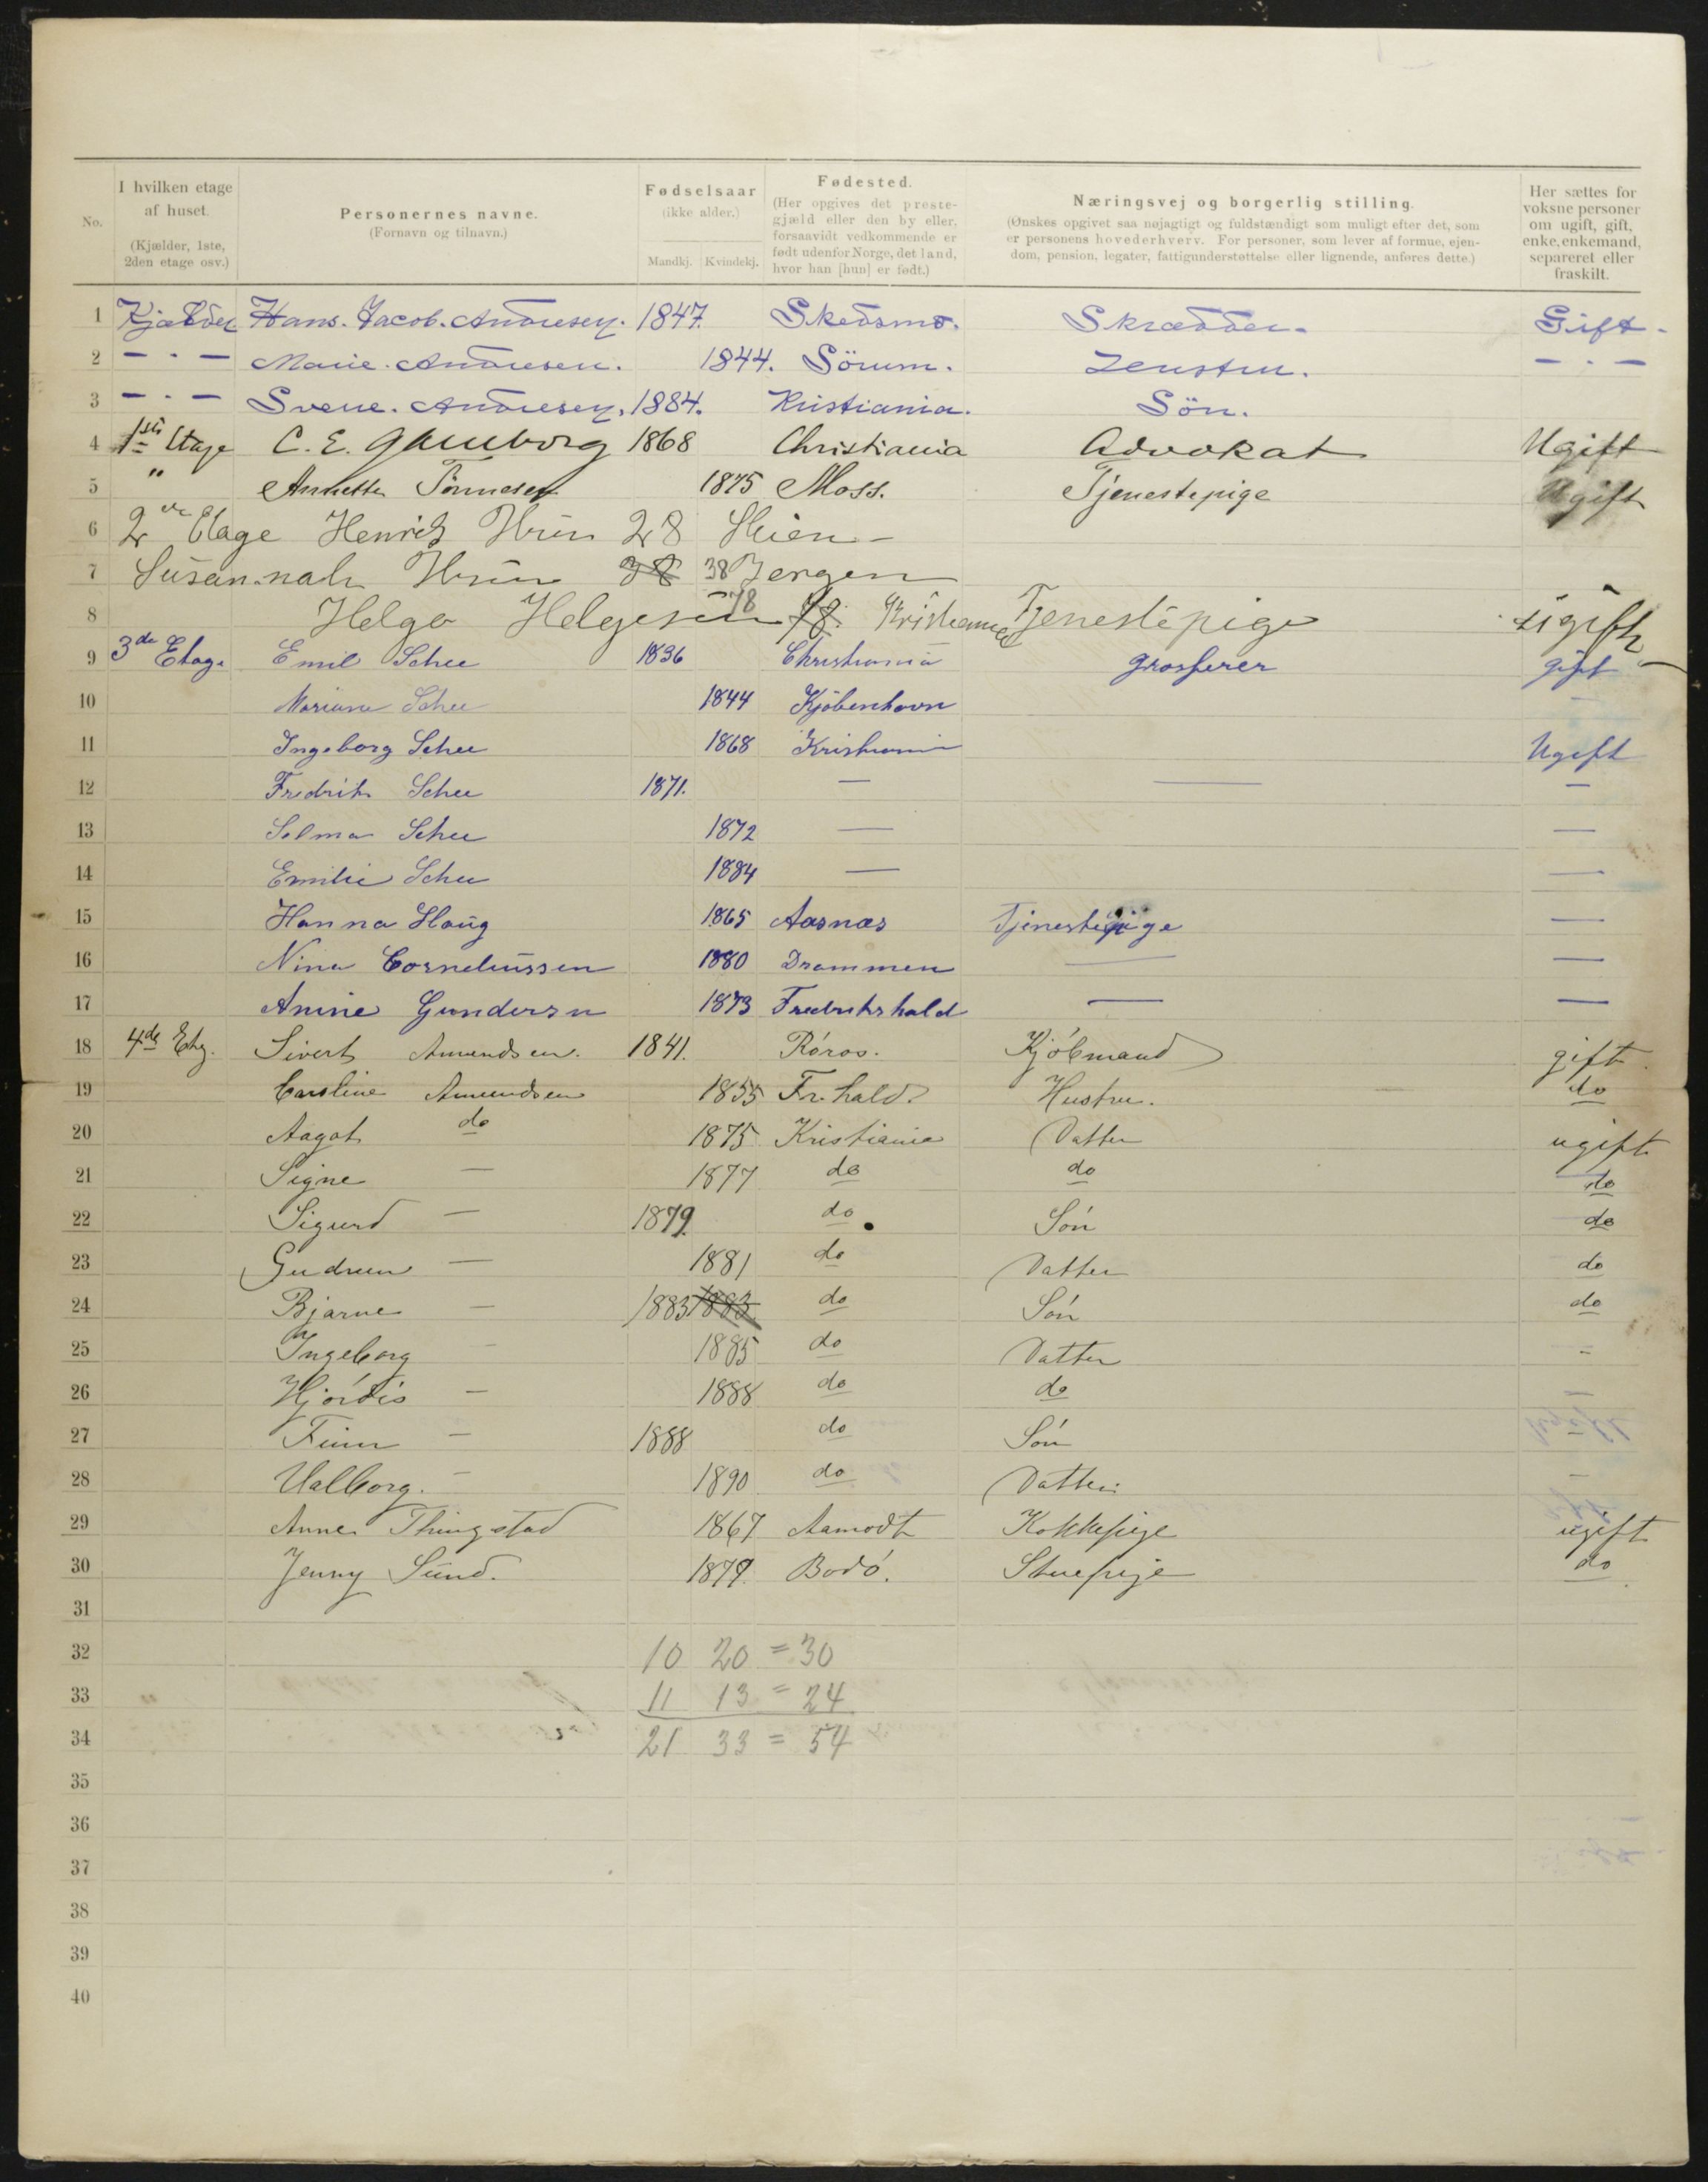 No. I hvilken etage af huset. (Kjælder, 1ste, 2den etage osv.) Personernes navne. (Fornavn og tilnavn.) Fødselsaar (ikke alder.) Mandkj. Kvindekj. Fødested. (Her opgives det prestegjæld eller den by eller, forsaavidt vedkommende er født udenfor Norge, det land, hvor han [hun] er født.) Næringsvej og borgerlig stilling. (Ønskes opgivet saa nøjagtigt og fuldstændigt som muligt efter det, som er personens hovederhverv. For personer, som lever af formue, ejendom, pension, legater, fattigunderstøttelse eller lignende, anføres dette.) Her sættes for voksne personer om ugift, gift, enke, enkemand, separeret eller fraskilt.
1 Kjælder Hans. Jacob. Andresen. 1847. Skedsmo. Skrædder. Gift.
2 — · — Marie. Andresen. 1844. Sörum. — · —
3 — · — Sverre. Andresen. 1884. Kristiania. Sön.
4 1ste Etage C. E. Gamborg 1868 Christiania Advokat Ugift
5 " Annette Tönnesen 1875 Moss. Tjenestepige Ugift
6 2de Etage Henrik 28 Skien
7 Susannah 38 38
8 Helga Helgesen 78 78 Kristiania Tjenestepige ugift
9 3de Etage Emil Schee 1836 Christiania grosserer gift
10 Mariane Schee 1844 Kjöbenhavn —
11 Ingeborg Schee 1868 Kristiania Ugift
12 Fredrik Schee 1871. — — —
13 Selma Schee 1872 — —
14 Emilie Schee 1884 — —
15 Hanna Haug 1865 Aasnæs Tjenestepige —
16 Nina Corneliussen 1880 Drammen — —
17 Anine Gundersn 1873 Fredrikshald — —
18 4de Etg. Sivert Amundsen. 1841. Röros. Kjöbmand gift
19 Caroline Amundsen 1855 Fr.hald. Hustru. do
20 Aagot do 1875 Kristiania Datter ugift
21 Signe — 1877 do do do
22 Sigurd — 1879. do Sön do
23 Gudrun — 1881 do Datter do
24 Bjarne — 1883 1883 do Sön do
25 Ingeborg — 1885 do Datter -
26 Hjördis — 1888 do do —
27 Finn — 1888 do Sön —
28 Valborg. — 1890 do Datter. -
29 Anne Thingstad 1867 Aamodt Kokkepige ugift
30 Jenny Sund. 1879. Bodö. Stuepige do
31
32 10 20 = 30
33 11 13 = 24
34 21 33 = 54
35
36
37
38
39
40